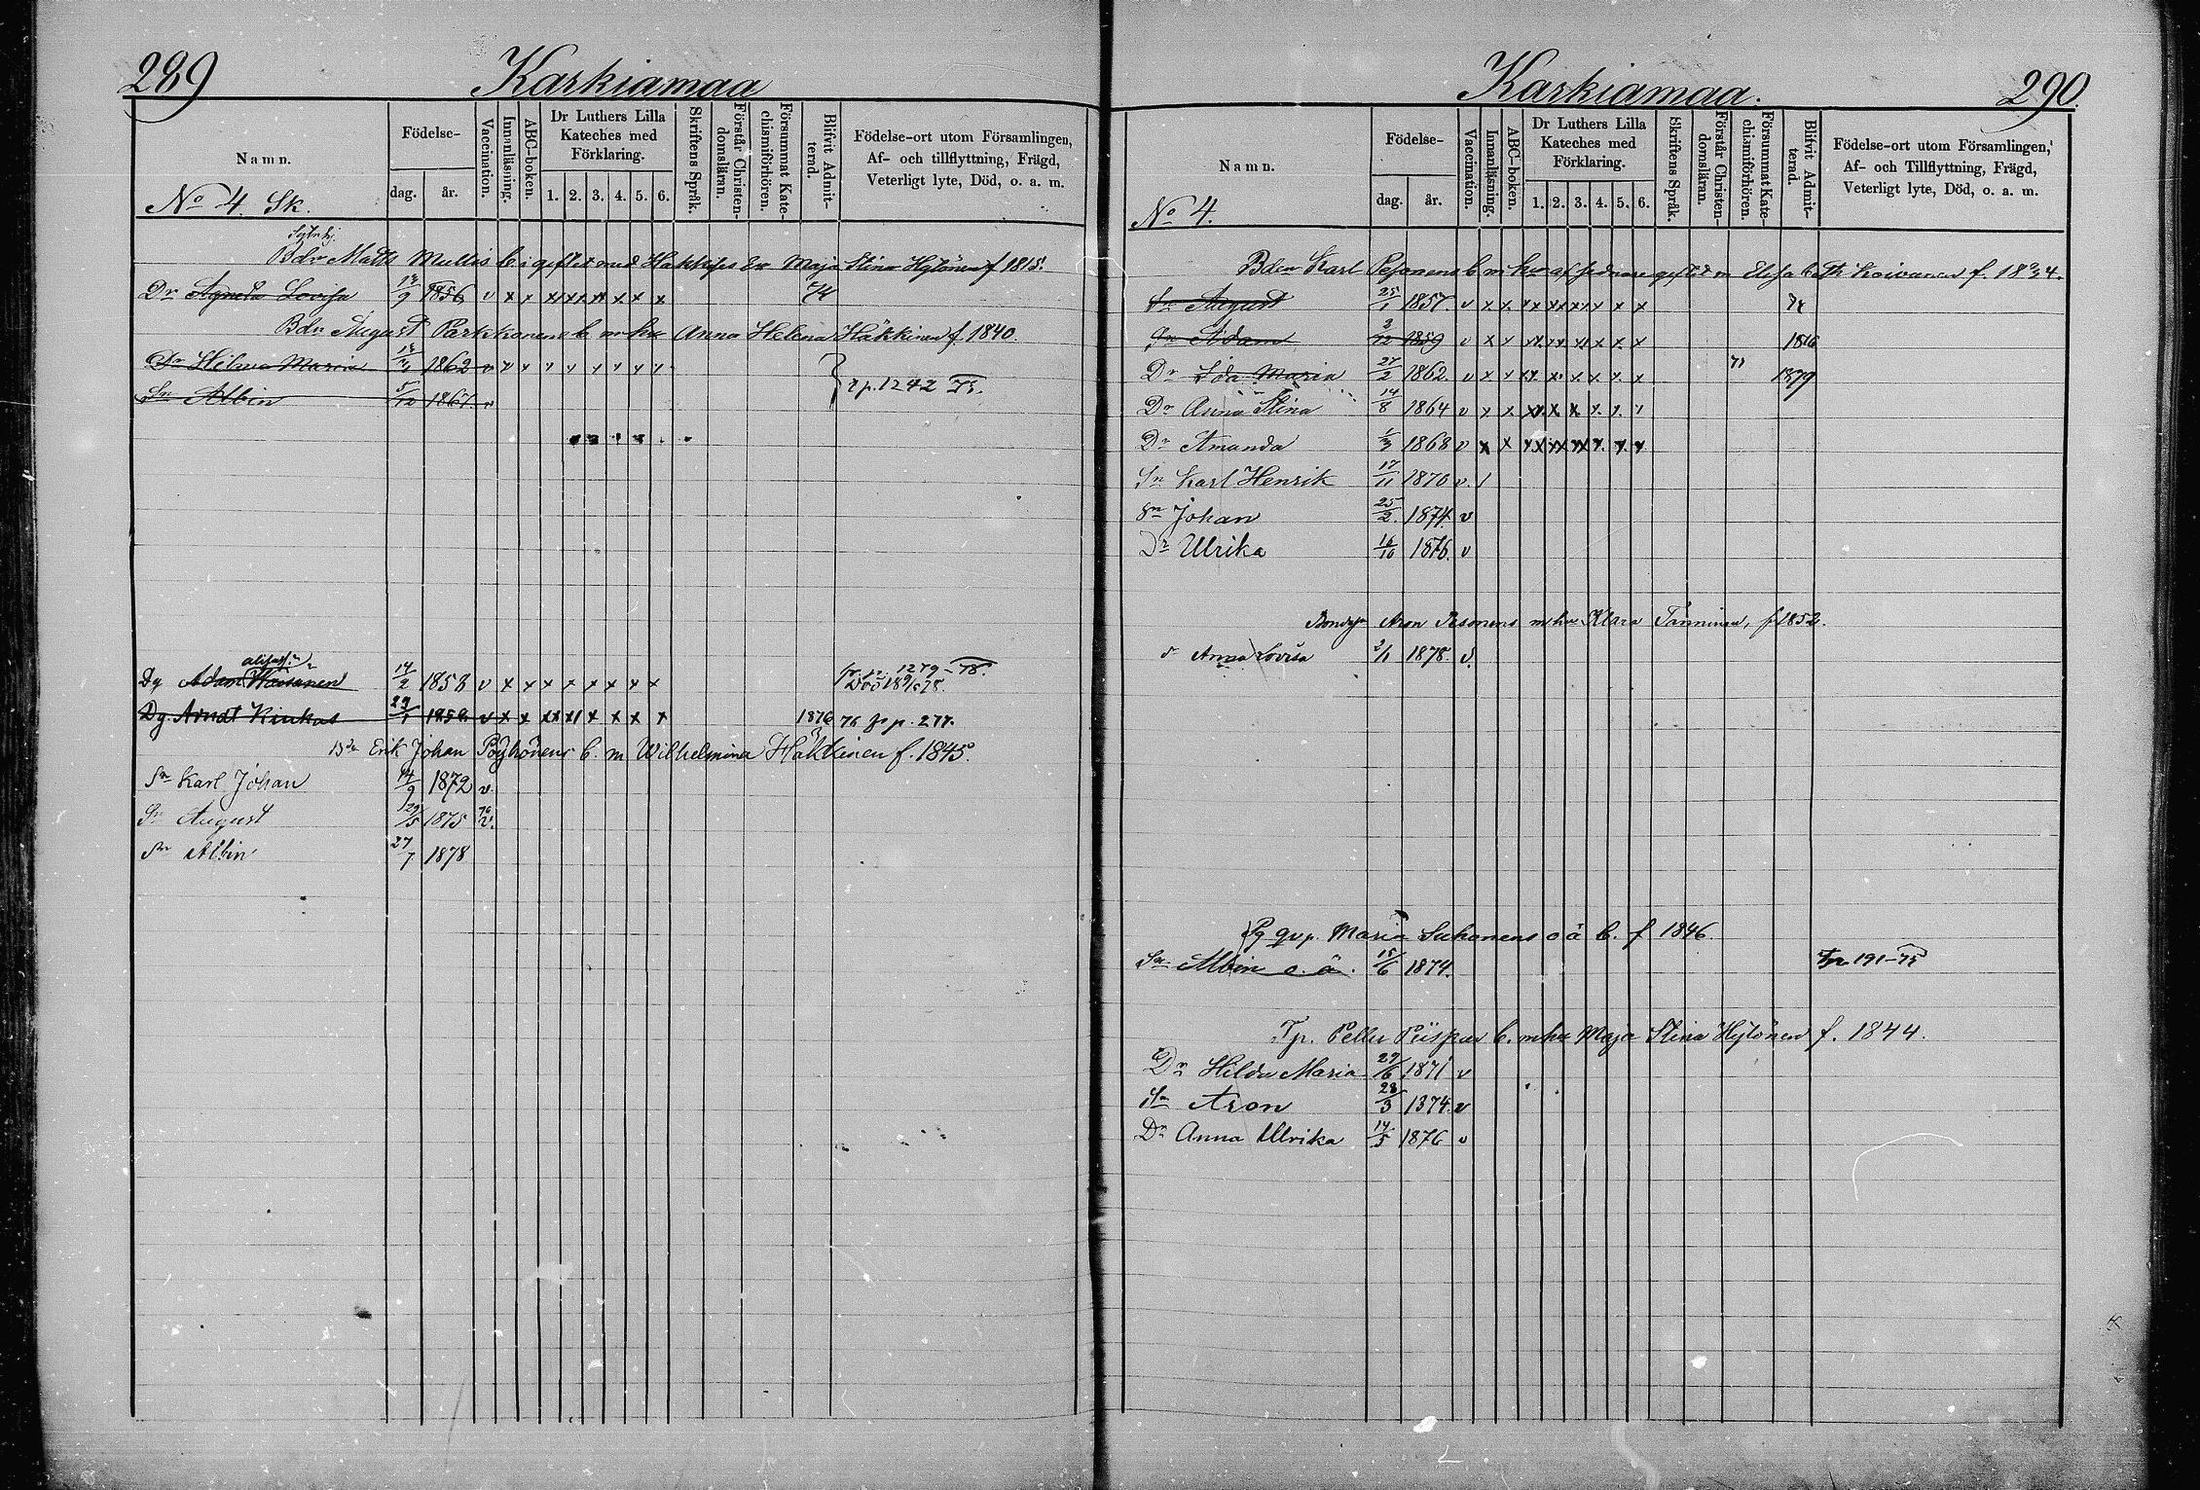 289
Karkiamaa
Namn.
Födelse-
dag.
år.
Vaccination.
Innanläsning.
ABC-boken.
Dr Luthers Lilla
Kateches med
Förklaring.
1. 2. 3. 4. 5. 6.
Skriftens Språk.
Förstår Christen-
domsläran.
Försummat Kate-
chismiförhören.
Blifvit Admit-
terad.
Födelse-ort utom Församlingen,
Af- och tillflyttning, Frägd,
Veterligt lyte, Död, o. a. m.
No 4. Sk.
Bdn Matts b. i giftet med Maja Stina Hytönen f. 1815.
Dr Agneta Lovisa 9 1856 v x x x x x x x x 74
Bdn August Parkkonens b. m. hu Anna Helena Häkkinen f. 1840.
Dr Hilma Maria 1862 v
Sn Albin 5/12 1867. v
p. 1242 75.
Dg Adam Wäisänen 14/2 1853 v x x x x x x x x 1279-78.
Dg. 29/1 v x x x x x x x x 1876 76 p. 277.
Bdn Erik Johan Pöyhönens b. m. Wilhelmina Häkkinen f. 1845.
Sn Karl Johan 14/9 1872 v.
Sn August 29/5 1875 76 v.
Sn Albin 27/7 1878
Karkiamaa.
290.
Namn.
Födelse-
dag.
år.
Vaccination.
Innanläsning.
ABC-boken.
Dr Luthers Lilla
Kateches med
Förklaring.
1. 2. 3. 4. 5. 6.
Skriftens Språk.
Förstår Christen-
domsläran.
Försummat Kate-
chismiförhören.
Blifvit Admit-
terad.
Födelse-ort utom Församlingen,
Af- och Tillflyttning, Frägd,
Veterligt lyte, Död, o. a. m.
No 4.
Bdn Karl Pesonens b m hu af giftet m Elisabeth Koivunen f. 1834.
Sn August 25/1 1857. v x x x x x x x x
Sn Adam 3/12 1859 v x x x x x x x x 1876
Dr Ida Maria 27/2 1862. v x x x x x x x x 1879
Dr Anna Stina 14/8 1864 v x x x x x x x x
Dr Amanda 1/3 1868 v x x x x x x x x
Sn Karl Henrik 17/11 1870 v. /
Sn Johan 25/2. 1874. v
Dr Ulrika 16/10 1876. v
Aron Pesonens m hu Klara Tänninen, f. 1852.
d Anna Lovisa 2/1 1878. v.
Maria Suhonens o ä b. f 1846.
Sn Albin o. ä. 15/6 1874. 191-75
Tp. Pelle b. m hu Maja Stina Hytönen f. 1844.
Dr Hilda Maria 29/6 1871 v
Sn Aron 28/3 1874. v
Dr Anna Ulrika 14/5 1876 v